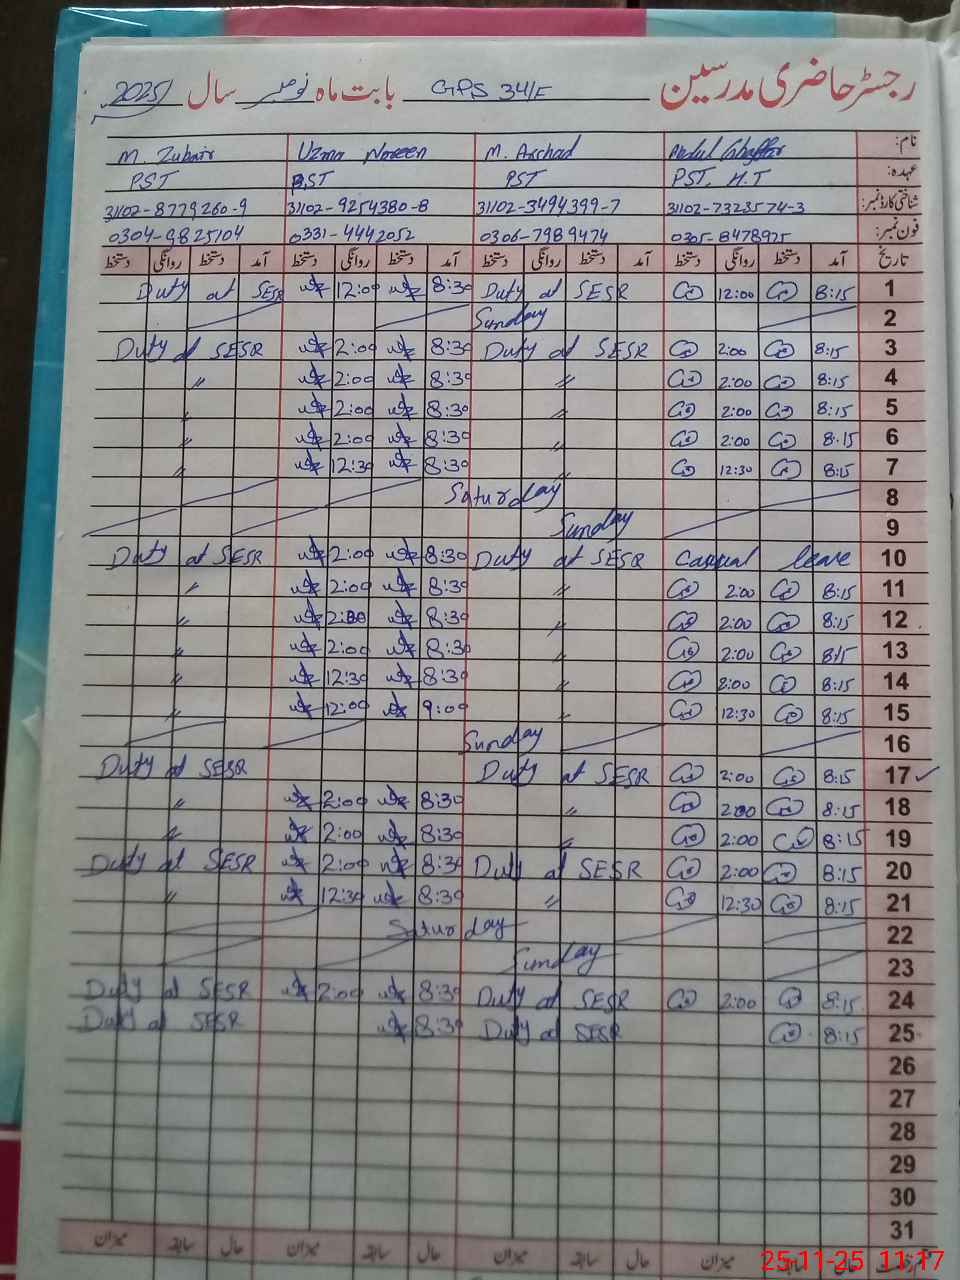 رجسٹر حاضری مدرسین GPS 34/F بابت ماہ نومبر سال 2025
M. Zubair Uzma Noreen M. Arshad Abdul Ghaffar نام:
PST PST PST PST, H.T عہدہ:
31102-8779260-9 31102-9254380-8 31102-3494399-7 31102-7323574-3 شناختی کارڈ نمبر:
0304-9825104 0331-4442052 0306-7989474 0305-8478925 فون نمبر:
دستخط روانگی دستخط آمد دستخط روانگی دستخط آمد دستخط روانگی دستخط آمد دستخط روانگی دستخط آمد تاریخ
Duty at SESR 12:00 8:30 Duty at SESR 12:00 8:15 1
Sunday 2
Duty at SESR 2:00 8:30 Duty at SESR 2:00 8:15 3
〃 2:00 8:30 〃 2:00 8:15 4
〃 2:00 8:30 〃 2:00 8:15 5
〃 2:00 8:30 〃 2:00 8:15 6
〃 12:30 8:30 〃 12:30 8:15 7
Saturday 8
Sunday 9
Duty at SESR 2:00 8:30 Duty at SESR Casual leave 10
〃 2:00 8:30 〃 2:00 8:15 11
〃 2:00 8:30 〃 2:00 8:15 12
〃 2:00 8:30 〃 2:00 8:15 13
〃 12:30 8:30 〃 2:00 8:15 14
〃 12:00 9:00 〃 12:30 8:15 15
Sunday 16
Duty at SESR Duty at SESR 2:00 8:15 17
〃 2:00 8:30 〃 2:00 8:15 18
〃 2:00 8:30 〃 2:00 8:15 19
Duty at SESR 2:00 8:30 Duty at SESR 2:00 8:15 20
〃 12:30 8:30 〃 12:30 8:15 21
Saturday 22
Sunday 23
Duty at SESR 2:00 8:30 Duty at SESR 2:00 8:15 24
Duty at SESR 8:30 Duty at SESR 8:15 25
26
27
28
29
30
31
میزان سابقہ حال میزان سابقہ حال میزان سابقہ حال میزان سابقہ حال
25-11-25 11:17